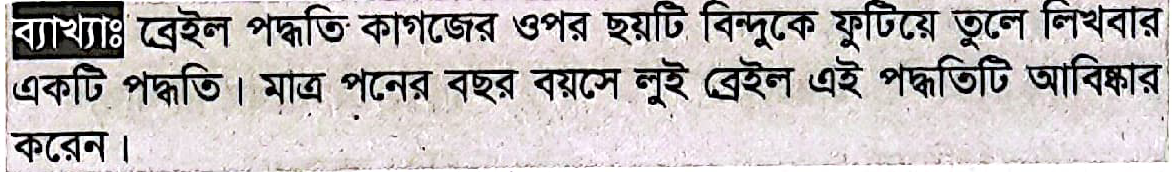 ব্যাখ্যাঃ ব্রেইল পদ্ধতি কাগজের ওপর ছয়টি বিন্দুকে ফুটিয়ে তুলে লিখবার
একটি পদ্ধতি। মাত্র পনের বছর বয়সে লুই ব্রেইল এই পদ্ধতিটি আবিষ্কার
করেন।